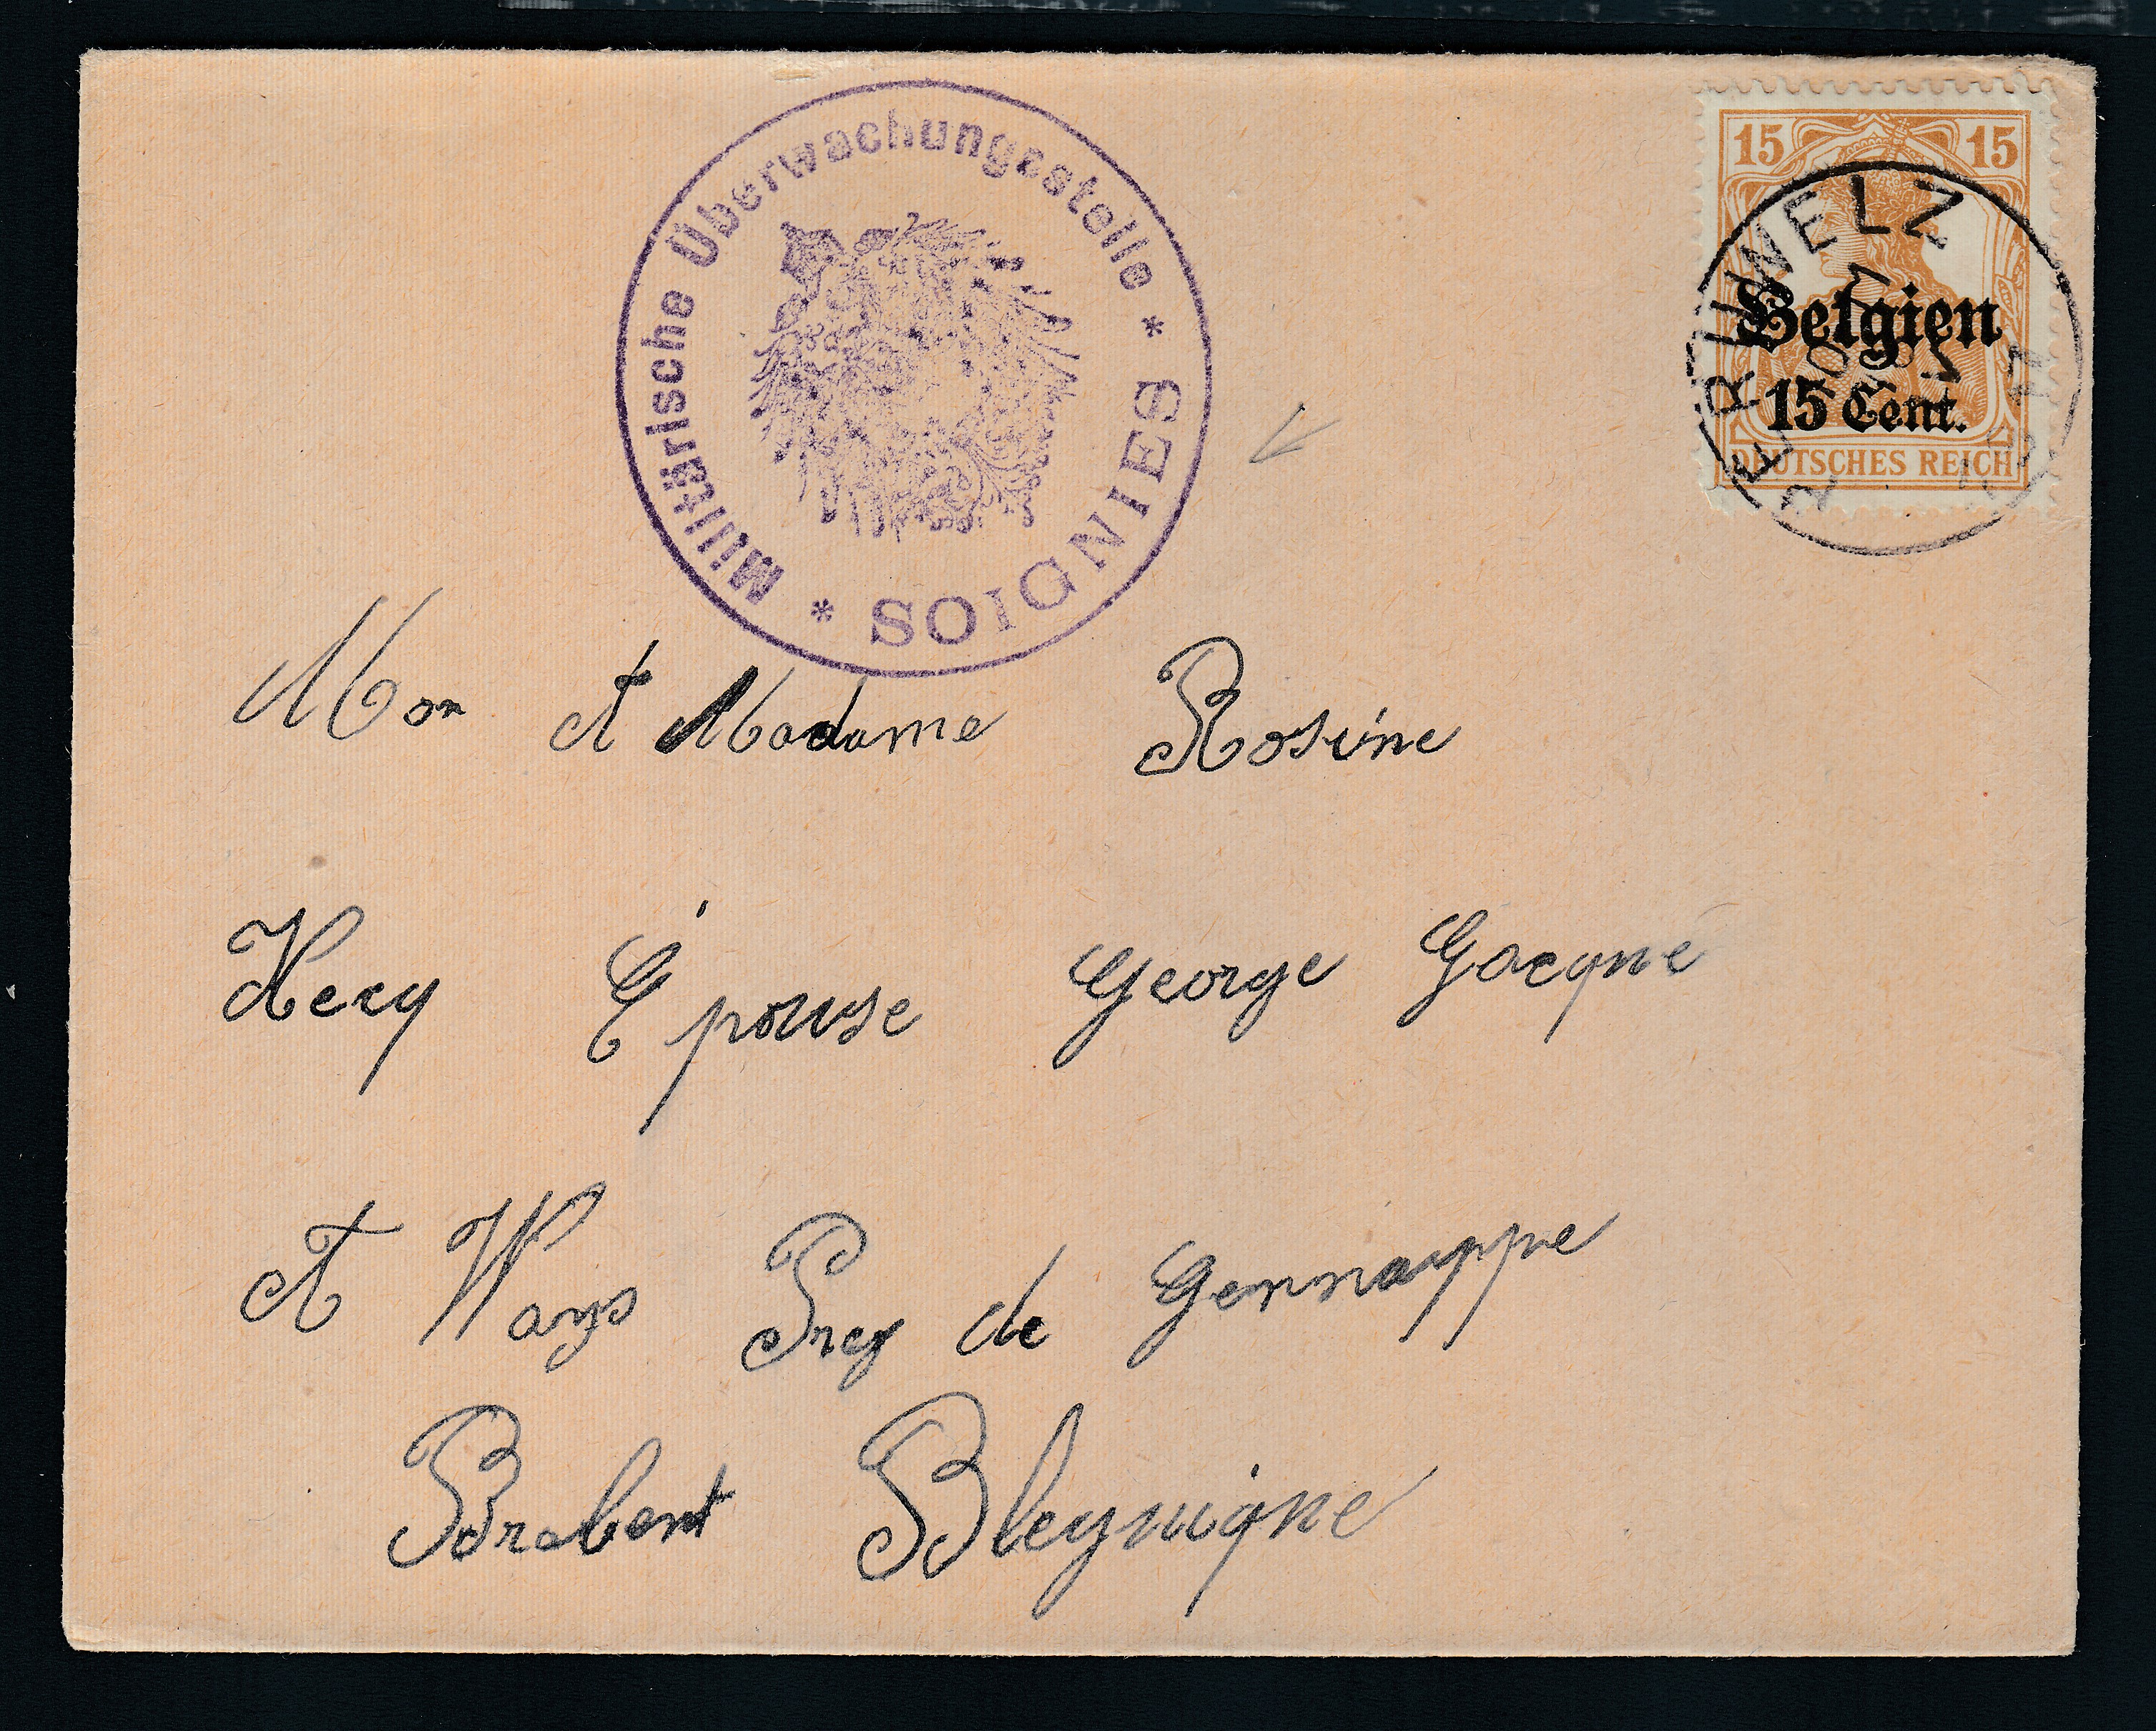 Militärische Überwachungsstelle * SOIGNIES *
15 15
PERUWELZ
Belgien
15 Cent.
DEUTSCHES REICH
Mon et Madame Rosine
Hecq Épouse George Gocqne
A Ways Prez de Gennappe
Brabent Bleyuiqne